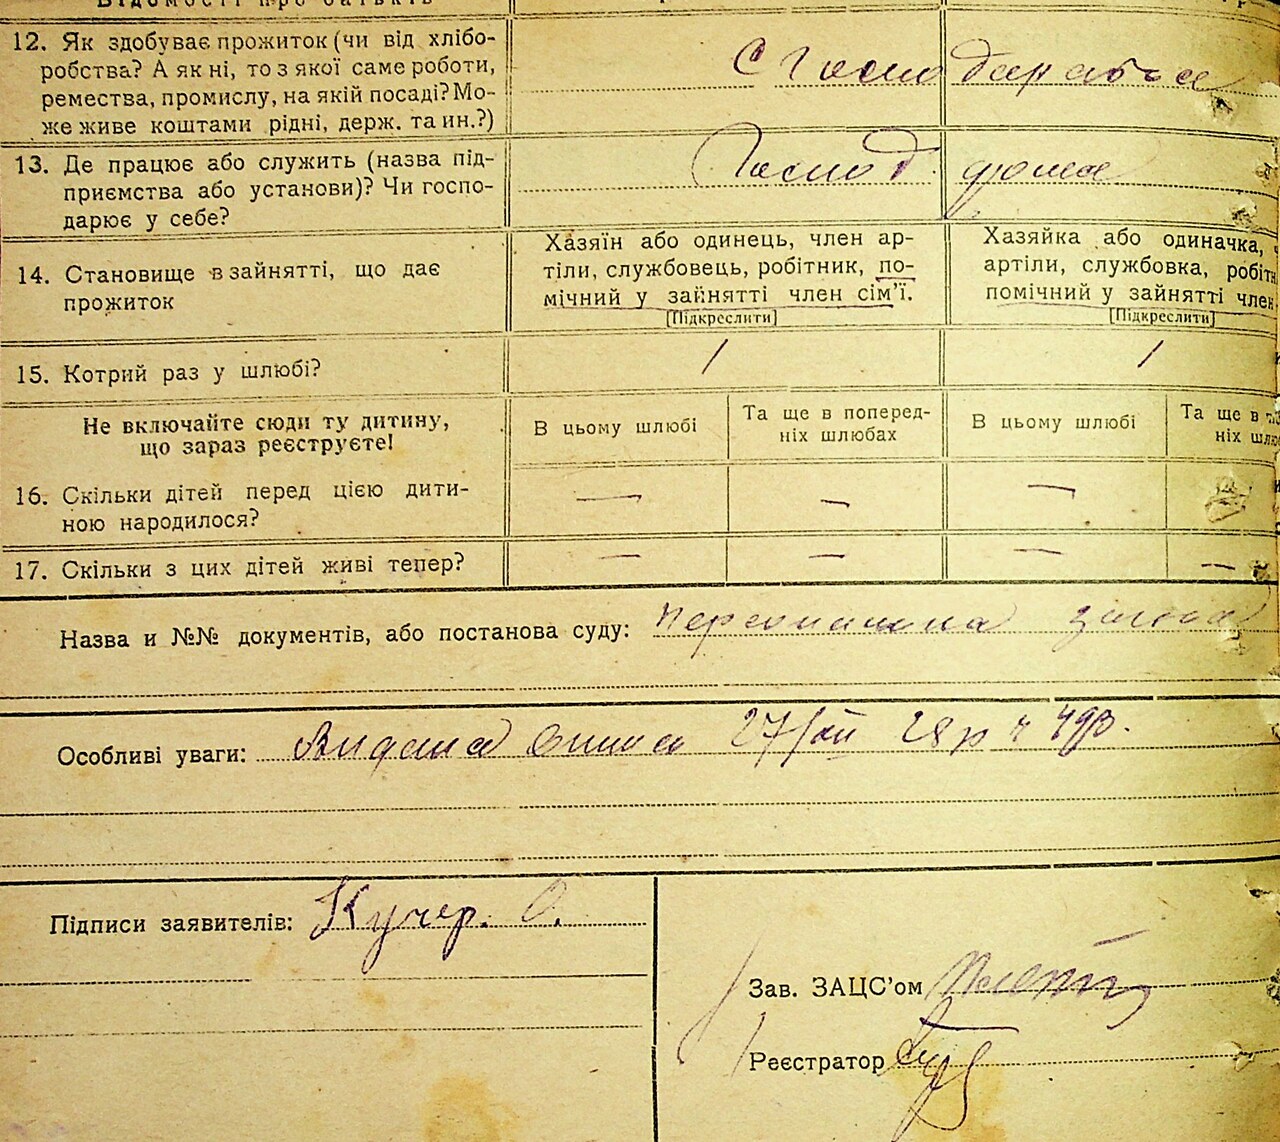 Відомості про батьків
12. Як здобуває прожиток (чи від хлібо-
робства? А як ні, то з якої саме роботи,
ремества, промислу, на якій посаді? Мо-
же живе коштами рідні, держ. та ин.?)
13. Де працює або служить (назва під-
приємства або установи)? Чи госпо-
дарює у себе?
Господ дома
14. Становище в зайнятті, що дає
прожиток
Хазяїн або одинець, член ар-
тіли, службовець, робітник, по-
мічний у зайнятті член сім'ї.
[Підкреслити]
Хазяйка або одиначка,
артіли, службовка, робітн
помічний у зайнятті член
[Підкреслити]
15. Котрий раз у шлюбі?
1
1
Не включайте сюди ту дитину,
що зараз реєструєте!
В цьому шлюбі
Та ще в поперед-
ніх шлюбах
В цьому шлюбі
Та ще в
ніх
16. Скільки дітей перед цією дити-
ною народилося?
— — —
17. Скільки з цих дітей живі тепер?
— — — —
Назва и №№ документів, або постанова суду:
Особливі уваги: Видана 27/ 28 р ч 493.
Підписи заявителів: Кучер. О.
Зав. ЗАЦС'ом
Реєстратор